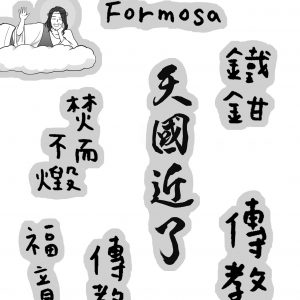 Formosa
鐵鉗
天國近了
焚而
不燬
傳教
傳教
福音